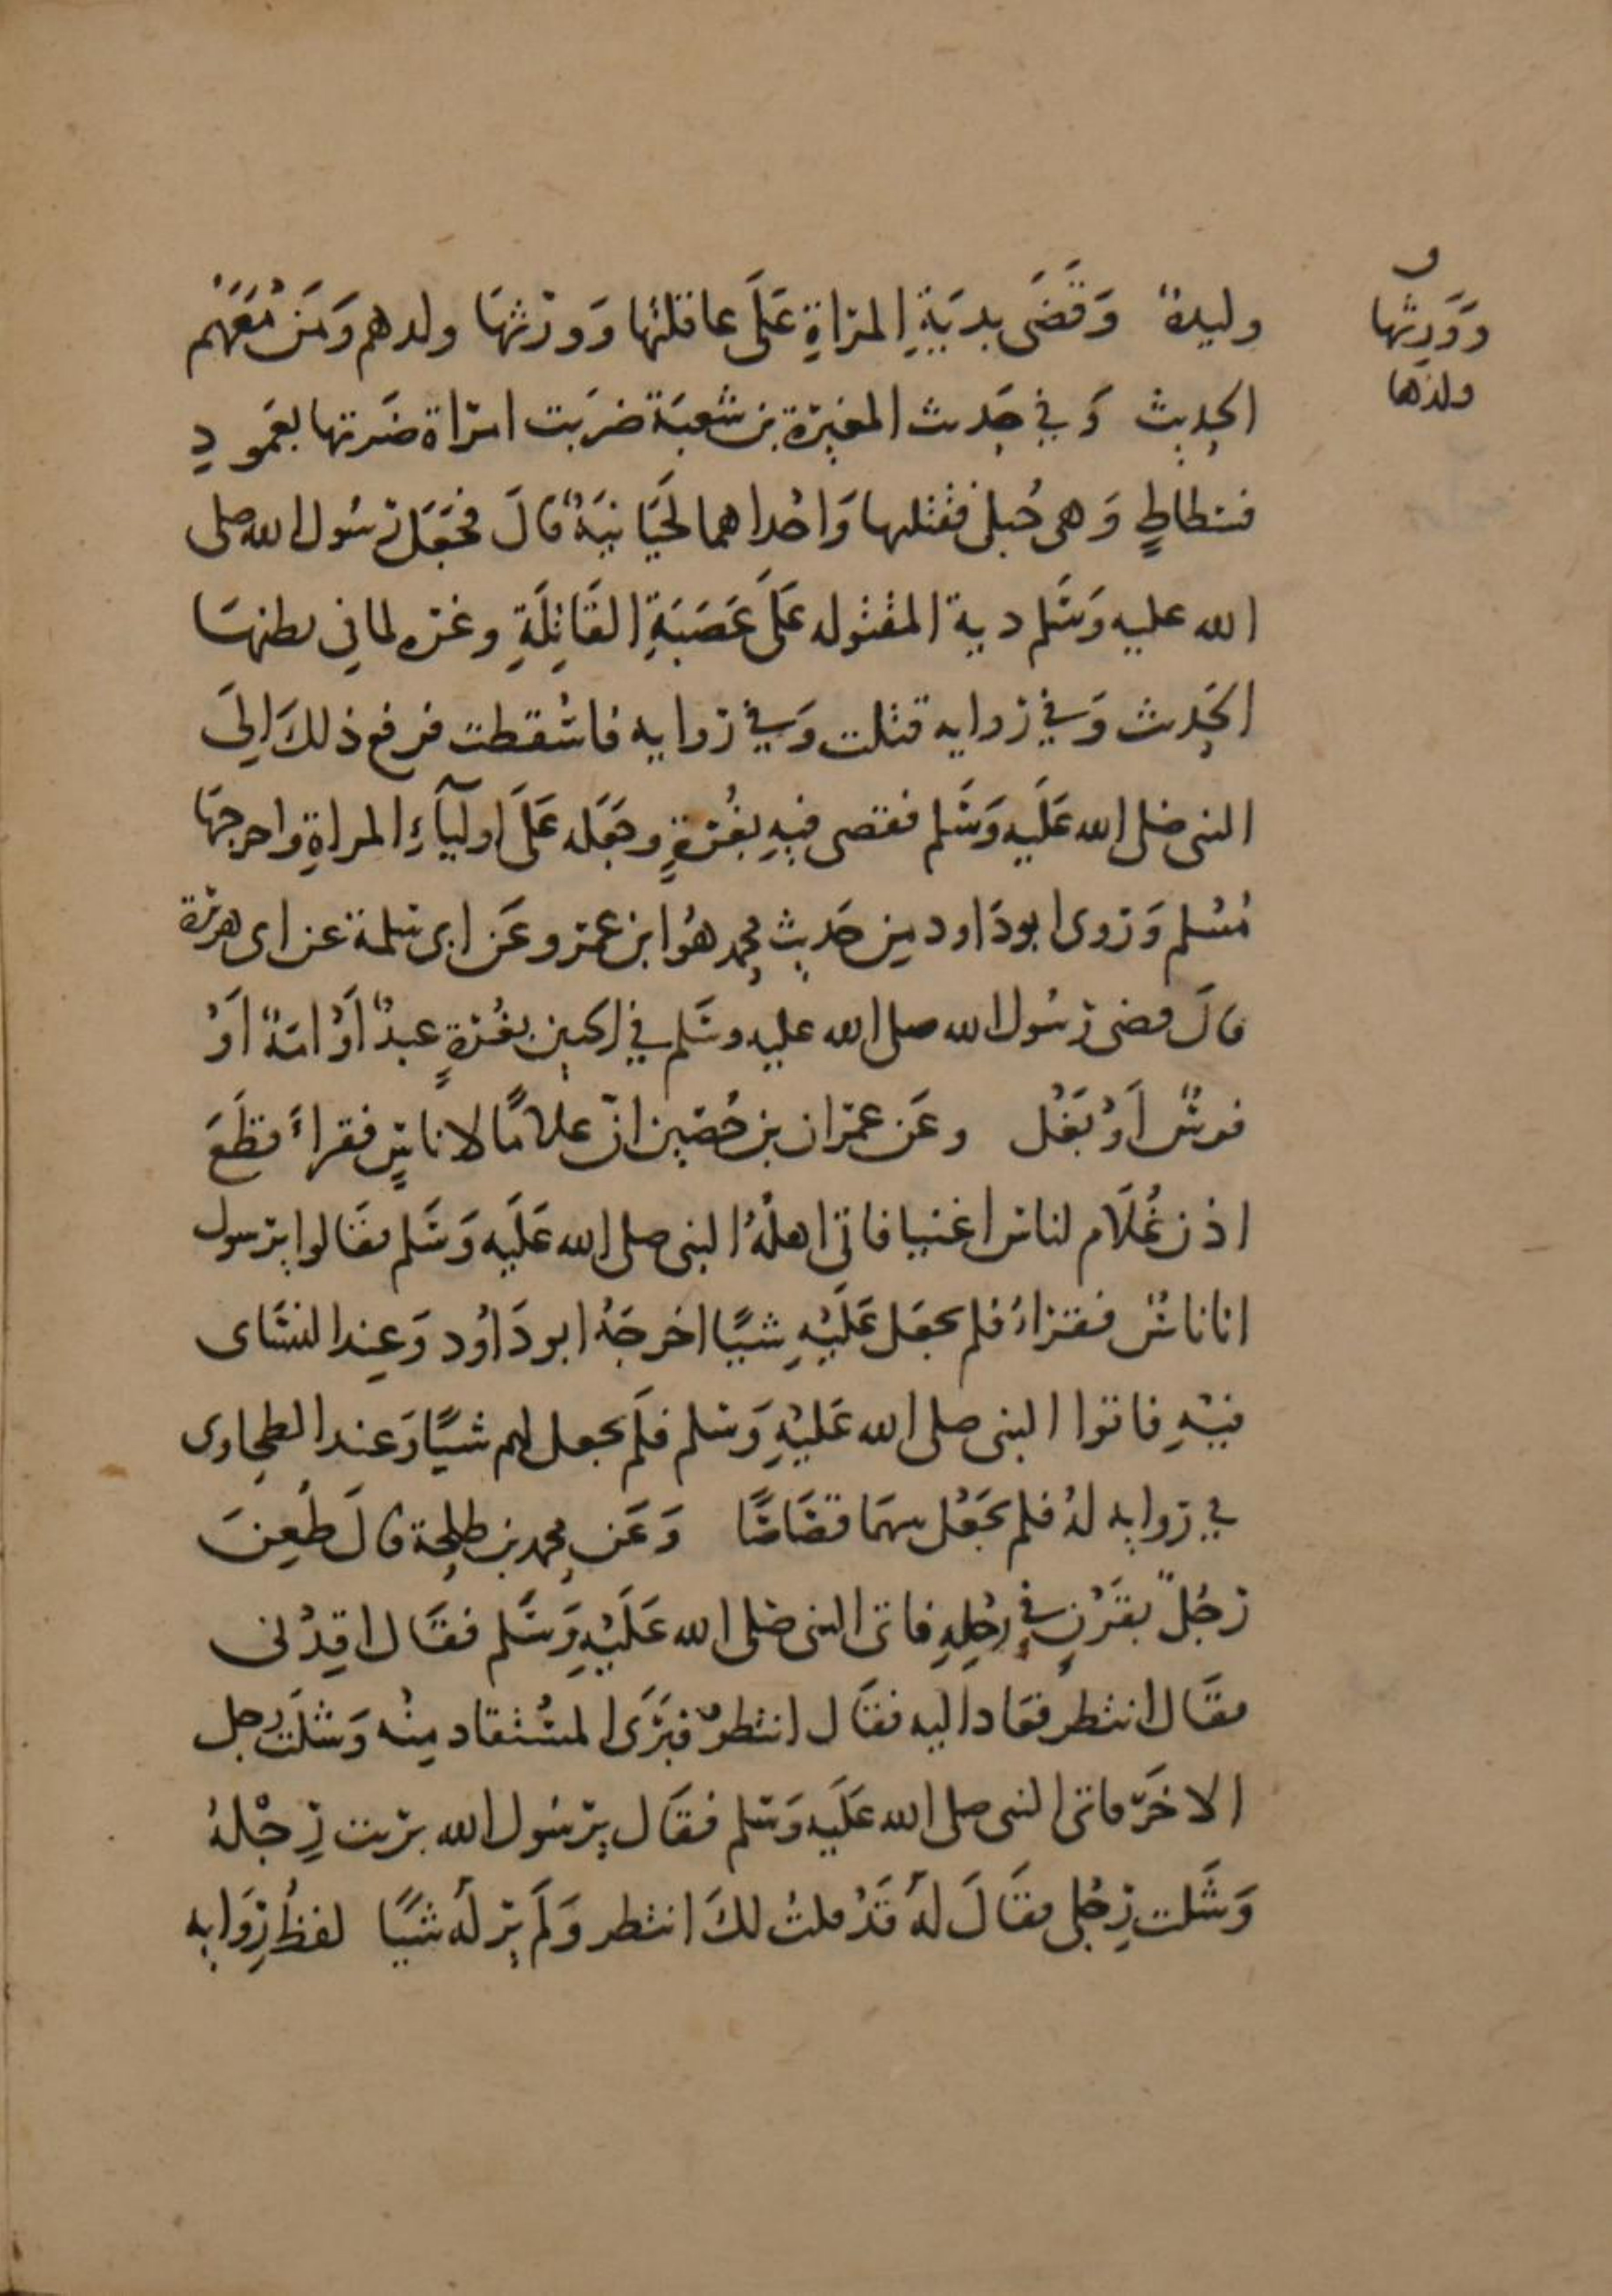 وليدة وَقَضَى بديَةِ المرَاةِ عَلَى عاقلتها وَورثهَا ولدهم وَمَن مَعَهُم
وَوَرثها
ولدها
الحديث وَفي حَديث المغيرة بن شعبَة ضرَبت امرَاة ضَرتها بعَمودِ
فسطاطٍ وَهى حُبلى فقتلها وَاحداهما لحيَانيَةٌ قالَ فجَعَل رسُول الله صلى
الله عليه وَسَلم دية المقتوله عَلَى عَصَبَةِ القَاتِلَةِ وغره لما في بطنهَا
الحَديث وَفي روايه قتلت وَفي روايه فاسقطت فرفع ذلكَ الىَ
النبى صَلى الله عَلَيه وَسَلم فقضى فيهِ بغُرةٍ وجَعَله عَلَى اوليآءِ المراةِ واخرجهَا
مُسْلم وَروى ابو دَاود مِن حَديث محمد هُوَ ابن عمرو عَن ابى سَلمة عن ابى هريرة
قالَ قضى رسُول الله صلى الله عليه وسَلم في الجنين بغُرةٍ عبدٌ اَوْ امَةٌ اَوْ
فرسٌ اَوْ بَغْل وعَن عمرَان بن حُصَين انّ غلامًا لاناسٍ فقراءَ قطَعَ
اذن غُلَام لناس اغنيا فاتى اهلهُ النبى صلى الله عَلَيه وَسَلم فقَالوا يرسول
انا ناسٌ فقرَاءُ فلم يجعَل عَلَيْهِ شيئًا اخرجَهُ ابو دَاوُد وَعِند النسَاى
فيْهِ فاتوا النبى صلى الله عَليْهِ وَسَلم فلَم يجعل لهم شيئًا وَعند الطحاوى
في روايه لهُ فلم يجَعْل بينهَما قصَاصًا وَعَن محمد بن طلحة قالَ طُعِنَ
رَجُلٌ بقَرْنٍ في رجْلِهِ فاتى النبى صَلى الله عَلَيْهِ وَسَلم فقَال اقِدْنى
فقَال انتظر فعَاد اليه فقَال انتظر فبَرَى المستقاد مِنْه وَشَلَت رجل
الاخَر فاتى النبى صلى الله عَلَيه وَسَلم فقَال يرسُول الله برَيت رِجْلهُ
وَشَلت رِجْلى فقَالَ لهُ قَدْ قلتُ لكَ انتظر وَلَم يرَ لهُ شيئًا لفظُ رِوَايه